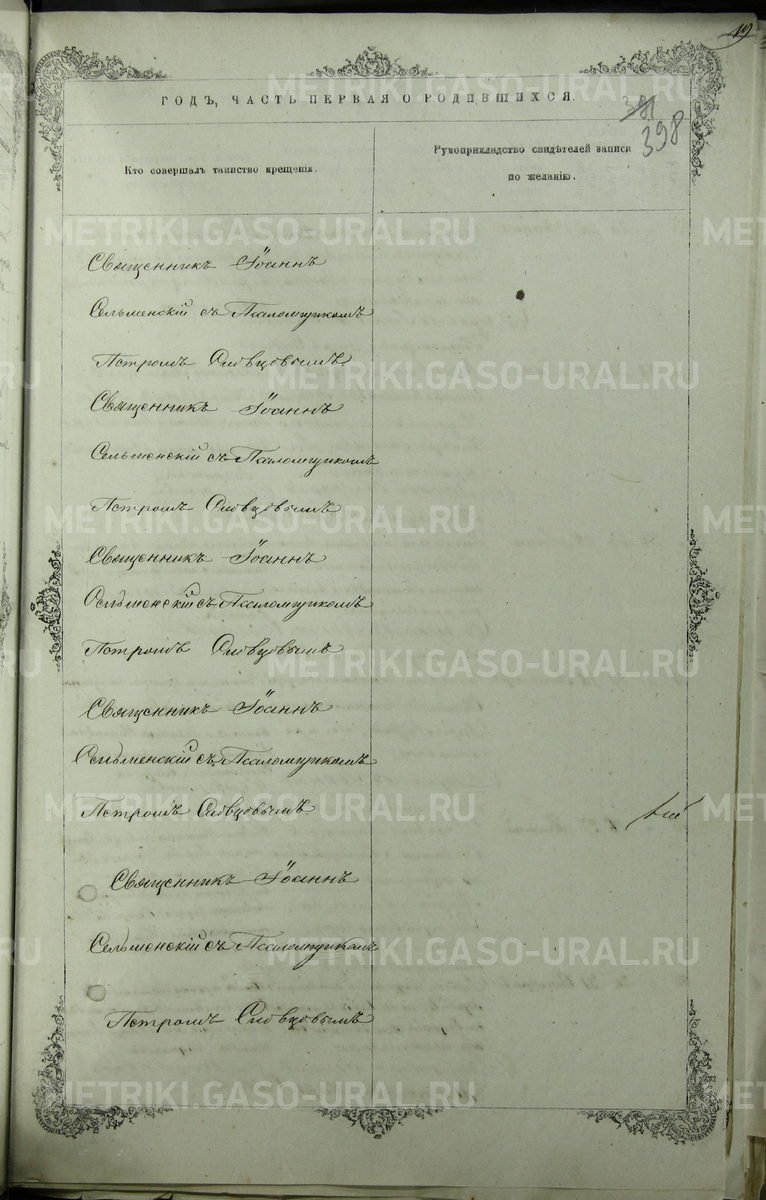 19
ГОДЪ, ЧАСТЬ ПЕРВАЯ О РОДИВШИХСЯ.
398
Кто совершалъ таинство крещенія.
Рукоприкладство свидѣтелей записи
по желанію.
Священникъ Іоаннъ
Сельменскій съ Псаломщикомъ
Петромъ Словцовымъ.
Священникъ Іоаннъ
Сельменскій съ Псаломщикомъ
Петромъ Словцовымъ
Священникъ Іоаннъ
Сельменскій съ Псаломщикомъ
Петромъ Словцовымъ
Священникъ Іоаннъ
Сельменскій съ Псаломщикомъ
Петромъ Словцовымъ
Священникъ Іоаннъ
Сельменскій съ Псаломщикомъ
Петромъ Словцовымъ
METRIKI.GASO-URAL.RU